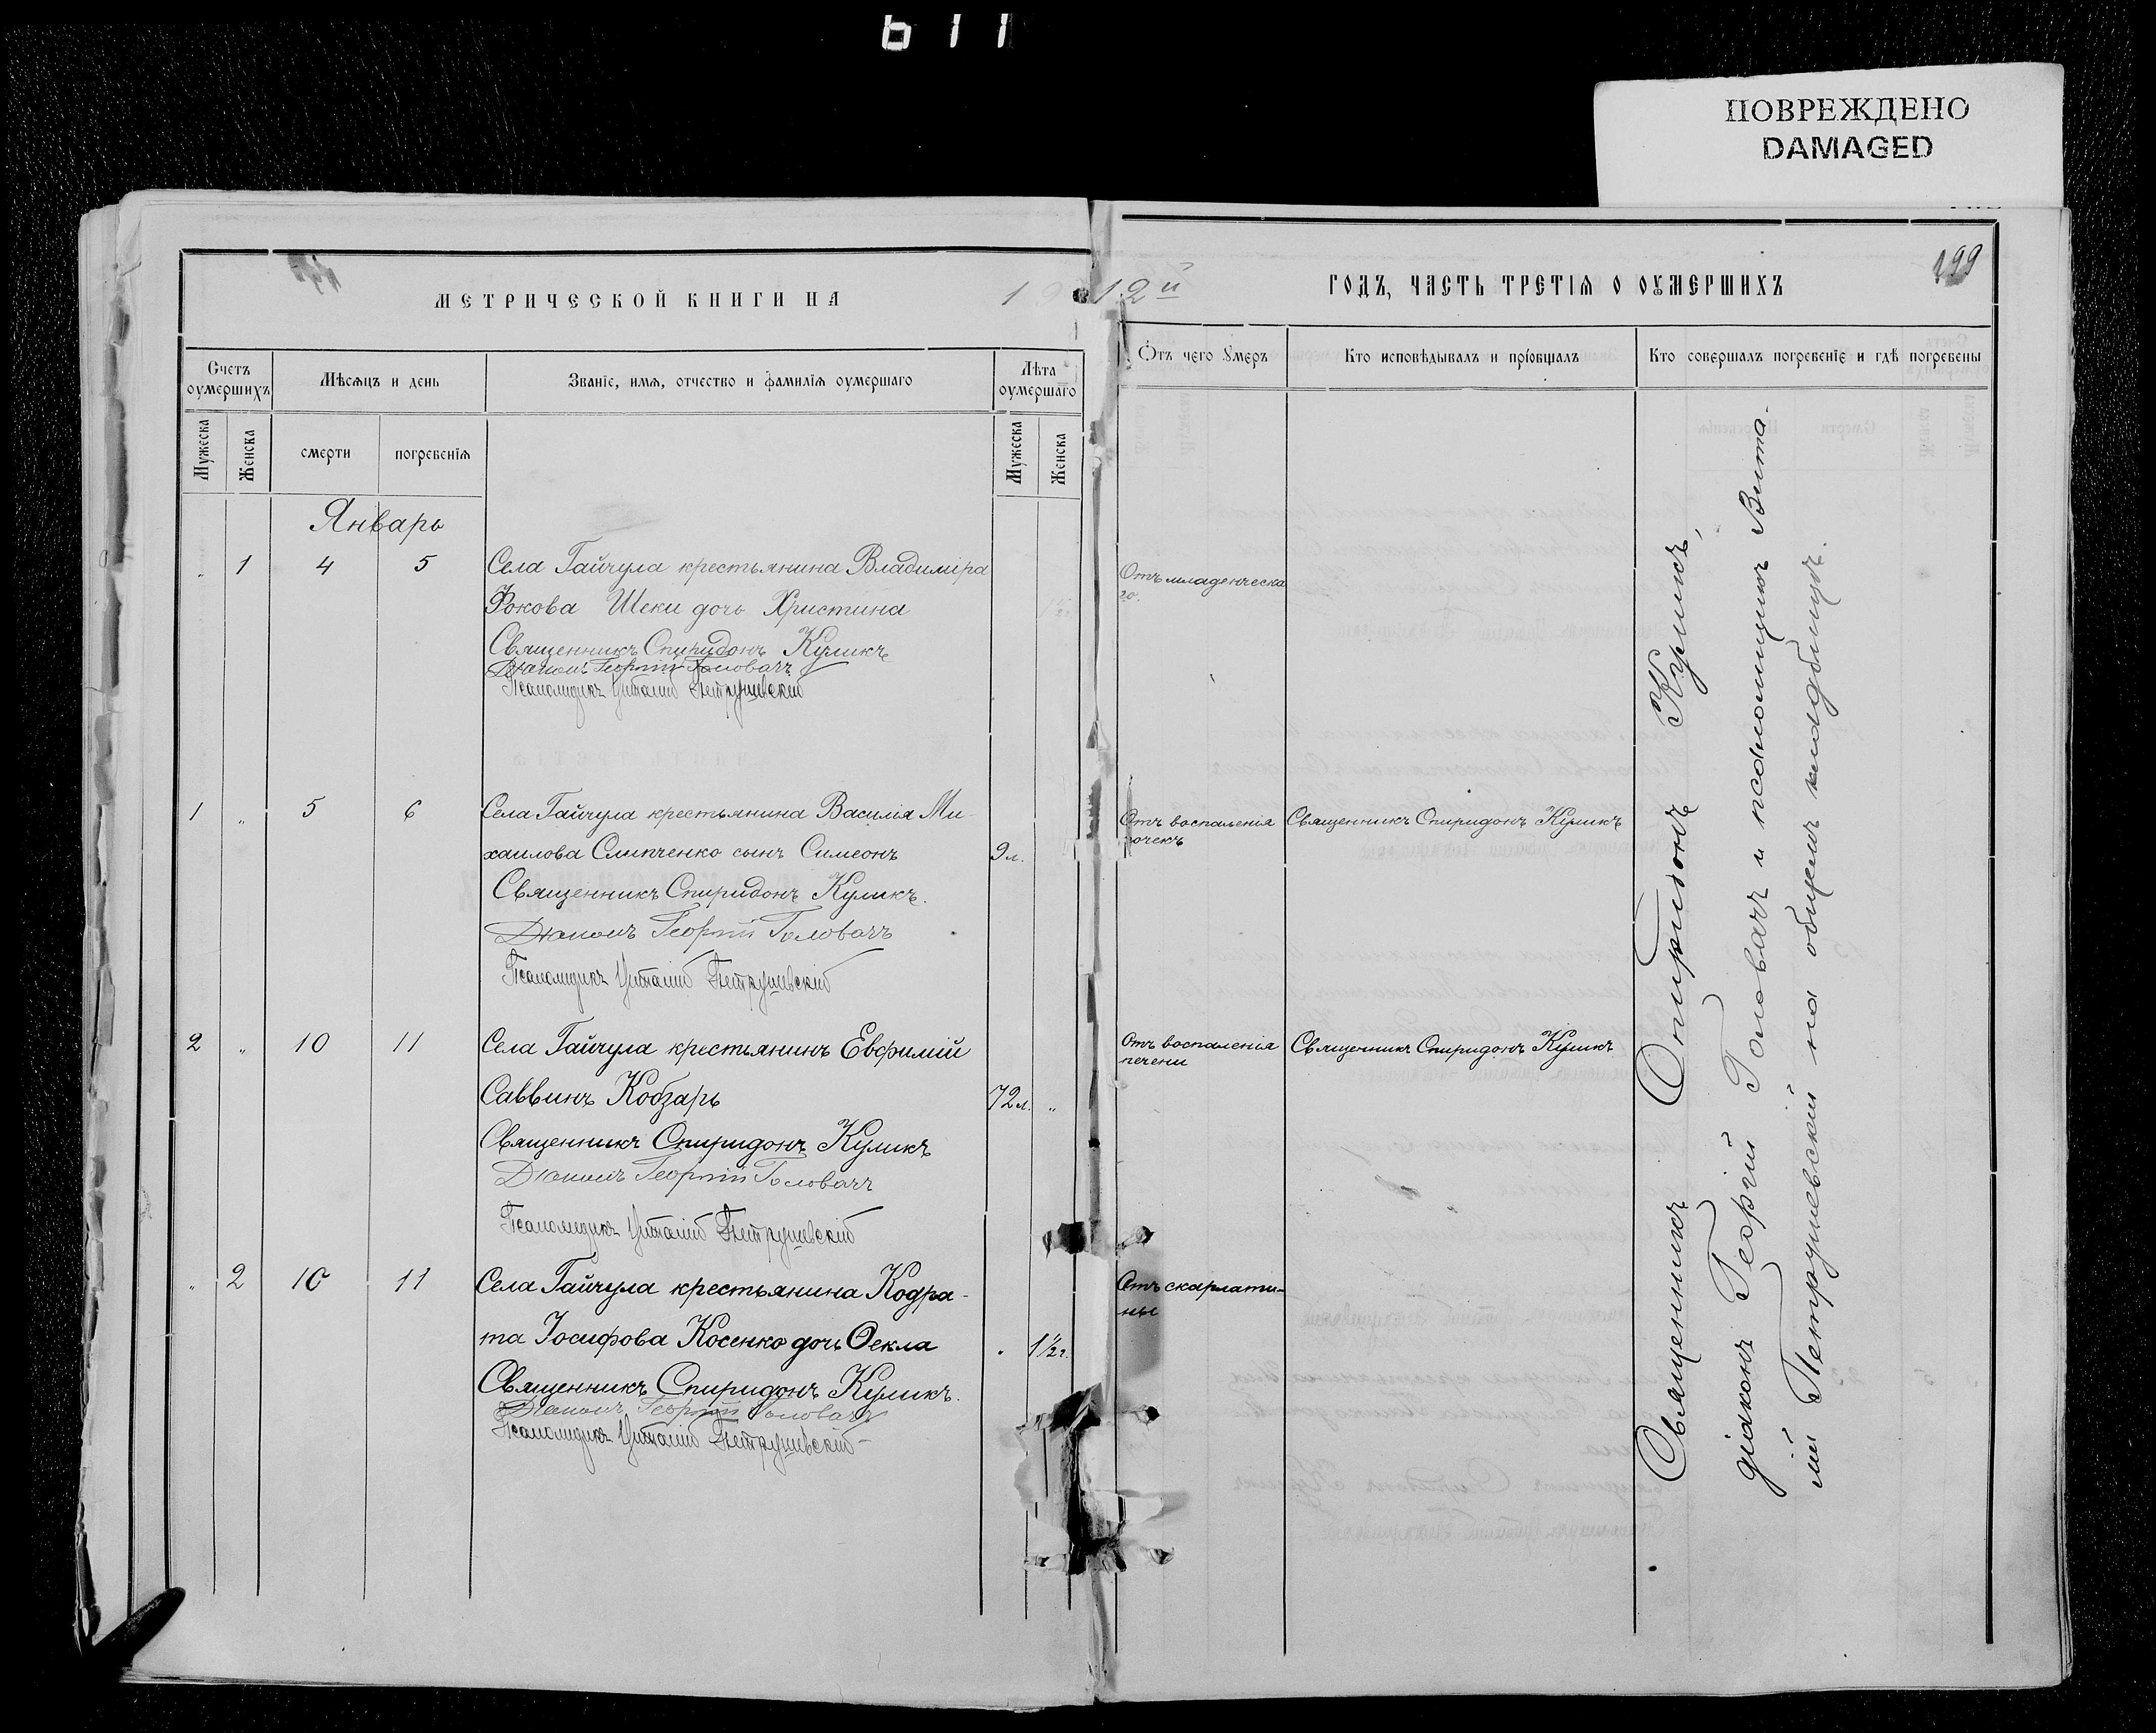 611
ПОВРЕЖДЕНО
DAMAGED
199
МЕТРИЧЕСКОЙ КНИГИ НА 1912й ГОДЪ, ЧАСТЬ ТРЕТІЯ О ОУМЕРШИХЪ
Счетъ оумершихъ
Мѣсяцъ и день
Званіе, имя, отчество и фамилія оумершаго
Лѣта оумершаго
Отъ чего умеръ
Кто исповѣдывалъ и пріобщалъ
Кто совершалъ погребеніе и гдѣ погребены
Мужеска
Женска
смерти
погребенія
Мужеска
Женска
Январь
„ 1 4 5 Села Гайчула крестьянина Владиміра
Фокова Шеки дочь Христина
Отъ младенческа
го.
Священникъ Спиридонъ Куликъ
Діаконъ Георгій Головачъ
Псаломщикъ Виталій Петрушевскій
1 „ 5 6 Села Гайчула крестьянина Василія Ми-
хаилова Слипченко сынъ Симеонъ 9л.
Отъ воспаленія
почекъ
Священникъ Спиридонъ Куликъ
Священникъ Спиридонъ Куликъ.
Діаконъ Георгій Головачъ
Псаломщикъ Виталій Петрушевскій
2 „ 10 11 Села Гайчула крестьянинъ Евфимій
Саввинъ Кобзарь 72л. „
Отъ воспаленія
печени
Священникъ Спиридонъ Куликъ
Священникъ Спиридонъ Куликъ
Діаконъ Георгій Головачъ
Псаломщикъ Виталій Петрушевскій
„ 2 10 11 Села Гайчула крестьянина Кодра-
та Іосифова Косенко дочь Ѳекла 1½г.
Отъ скарлати-
ны
Священникъ Спиридонъ Куликъ.
Діаконъ Георгій Головачъ
Псаломщикъ Виталій Петрушевскій
Священникъ Спиридонъ Куликъ,
діаконъ Георгій Головачъ и псаломщикъ Вита-
лій Петрушевскій на общемъ кладбищѣ.